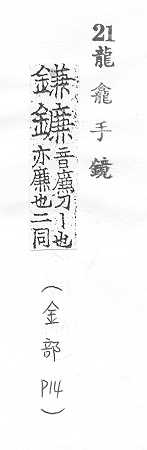 21龍龕手鏡
鎌鐮音廉刀丨也
亦廉也二同
(金部 P14)